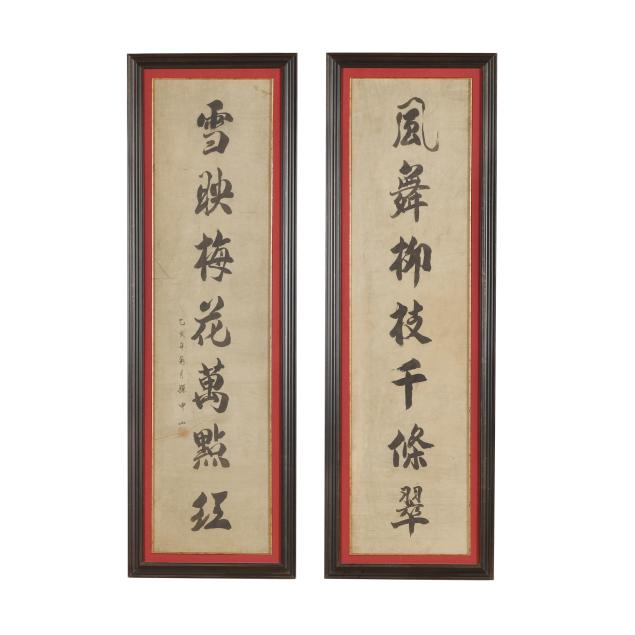 風舞柳枝千條翠
雪映梅花萬點紅
乙亥年菊月孫中山